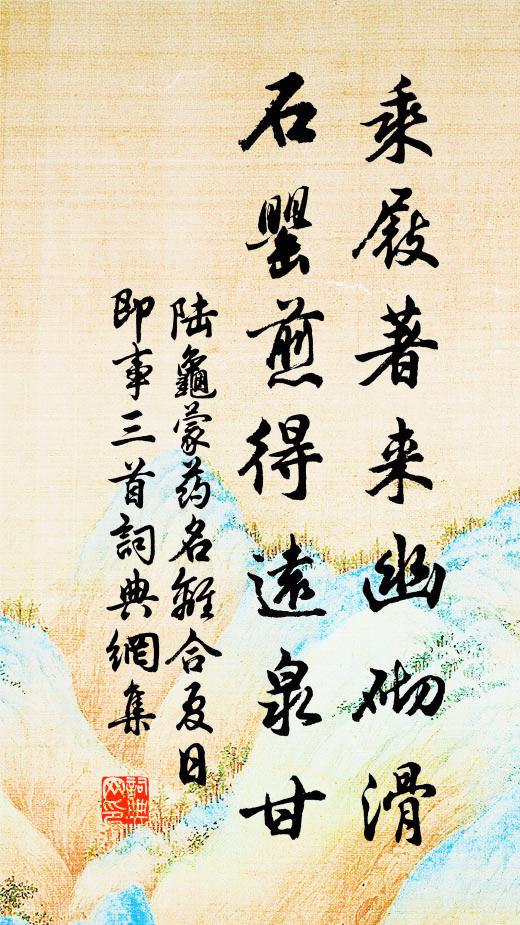 乘屐著来幽砌滑
石罂煎得遠泉甘
陆龜蒙药名離合夏日
即事三首詞典網集
詞典网印